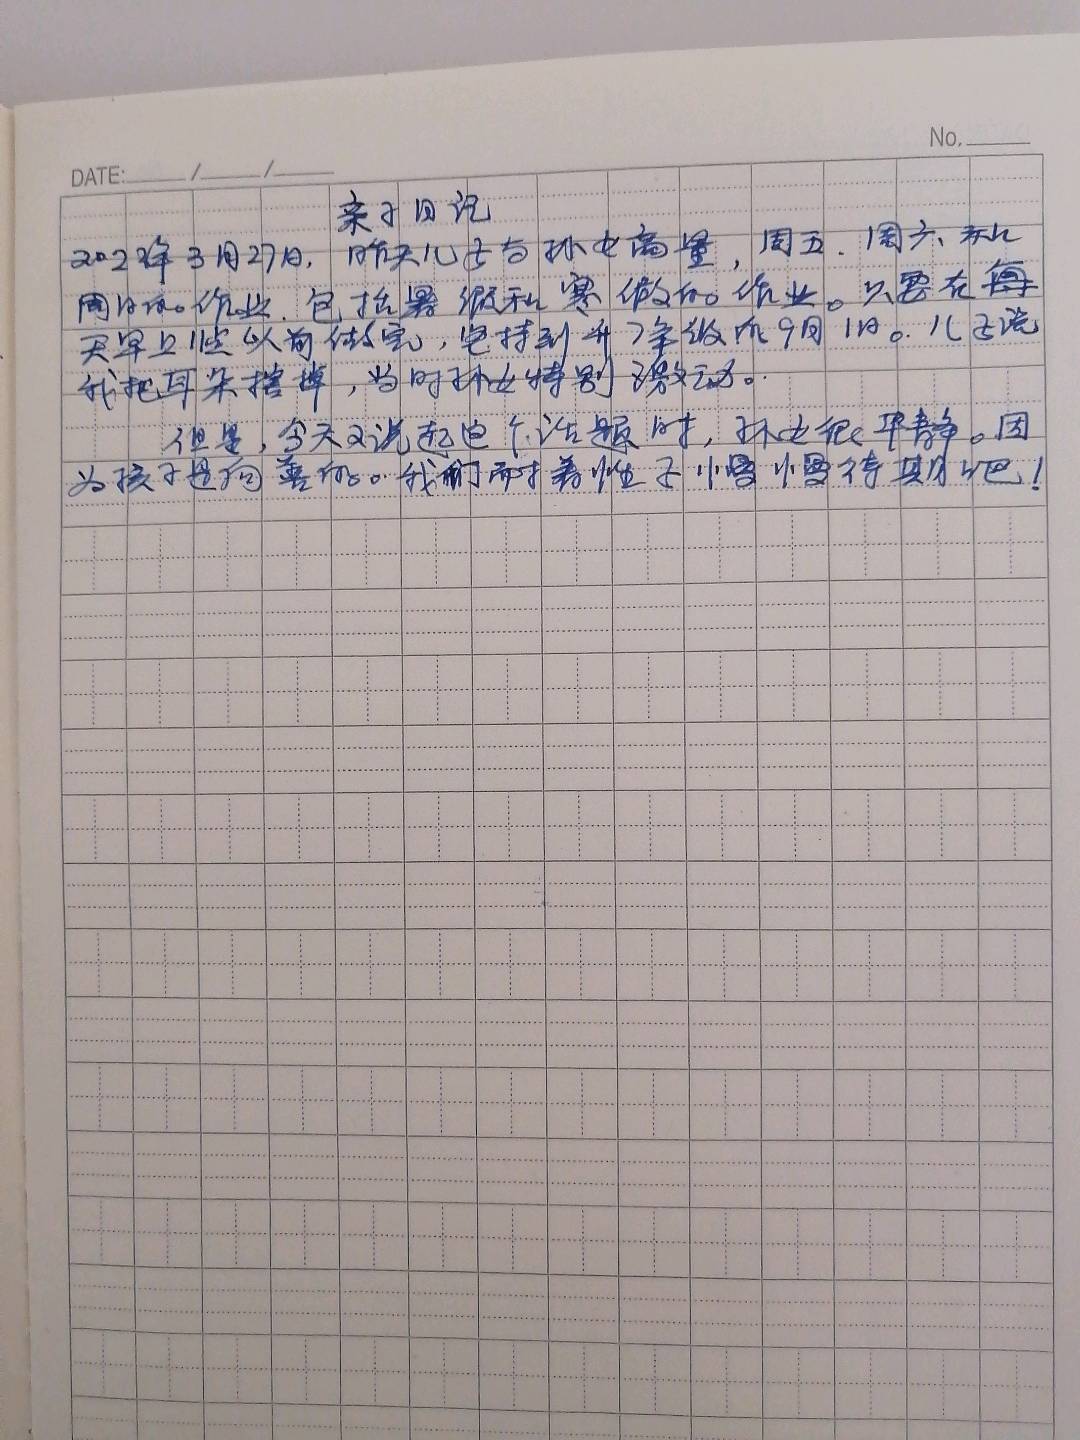 No.
DATE: / /
亲子日记
2022年3月27日，昨天儿子与孙女商量，周五．周六和
周日的作业．包括暑假和寒假的作业。只要在每
天早上11点以前做完，坚持到升7年级的9月1日。儿子说
我把耳朵揢掉，当时孙女特别激动。
但是，今天又说起这个话题时，孙女很平静。因
为孩子是向善的。我们耐着性子小
待其身吧！